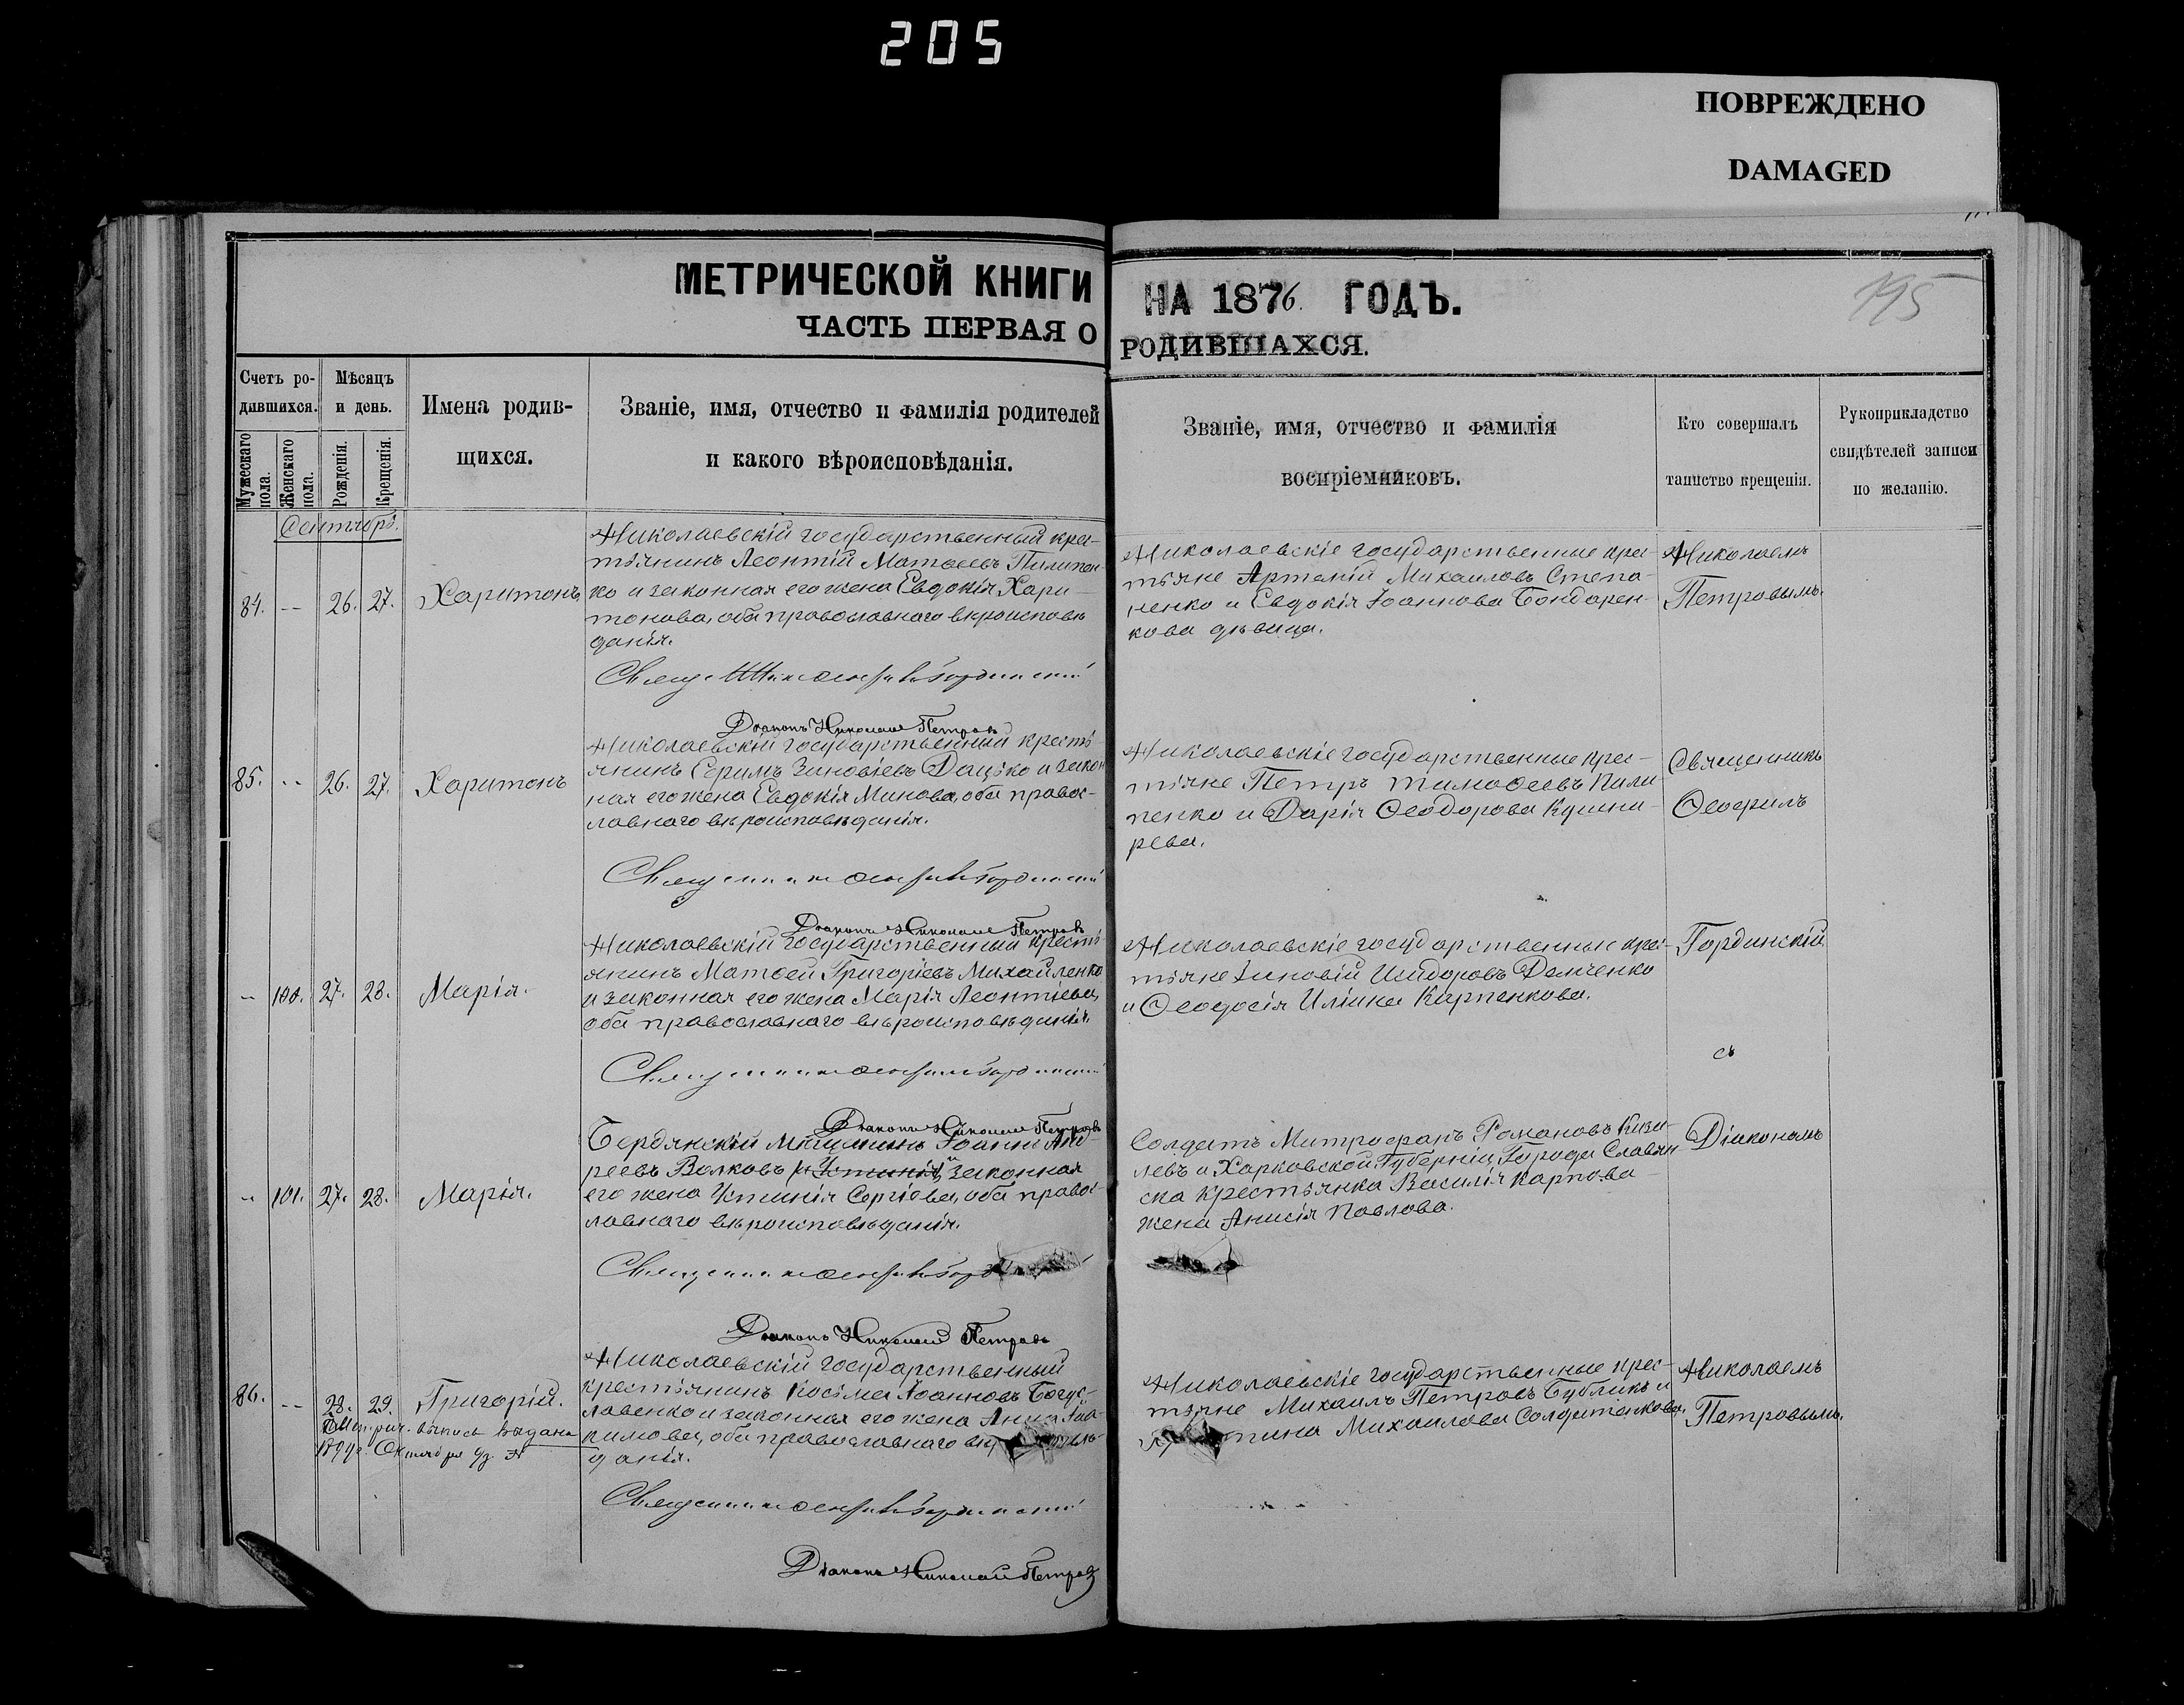 205
ПОВРЕЖДЕНО
DAMAGED
195
МЕТРИЧЕСКОЙ КНИГИ НА 1876. ГОДЪ.
ЧАСТЬ ПЕРВАЯ О РОДИВШАХСЯ.
Счетъ ро-
дившихся.
Мужескаго пола.
Женскаго пола.
Мѣсяцъ
и день.
Рожденія.
Крещенія.
Имена родив-
щихся.
Званіе, имя, отчество и фамилія родителей
и какого вѣроисповѣданія.
Званіе, имя, отчество и фамилія
воспріемниковъ.
Кто совершалъ
таинство крещенія.
Рукоприкладство
свидѣтелей записи
по желанію.
Сентябрь.
84. -- 26. 27. Харитонъ
Николаевскій государственный крес-
тьянинъ Леонтій Матѳеевъ Пилипен-
ко и законная его жена Евдокія Хари-
тонова, оба православнаго вѣроисповѣ
данія.
Николаевскіе государственные крес-
тьяне Артемій Михаиловъ Степа-
ненко и Евдокія Іоаннова Бондарен-
кова дѣвица.
Николаемъ
Петровымъ.
Діаконъ Николай Петровъ
85. -- 26. 27. Харитонъ
Николаевскій государственный кресть-
янинъ Серимъ Зиновіевъ Дацько и закон
ная его жена Евдокія Минова, оба правос-
лавнаго вѣроисповѣданія.
Николаевскіе государственные крес-
тьяне Петръ Тимоѳеевъ Пили
пенко и Дарія Ѳеодорова Кушни-
рева.
Священникъ
Ѳеофилъ
Священникъ Ѳеофилъ Гординскій
Діаконъ Николай Петровъ
-- 100. 27. 28. Марія.
Николаевскій государственный кресть-
янинъ Матѳей Григоріевъ Михайленко
и законная его жена Марія Леонтіева,
оба православнаго вѣроисповѣданія.
Николаевскіе государственные крес-
тьяне Зиновій Исидоровъ Демченко
и Ѳеодосія Иліина Карпенкова.
Гординскій
съ
Священникъ Ѳеофилъ Гординскій
Діаконъ Николай Петровъ
-- 101. 27. 28. Марія.
Бердянскій Мѣщанинъ Іоаннъ Анд-
реевъ Волковъ и законная
его жена Устинія Сергіева, оба правос
лавнаго вѣроисповѣданія.
Солдатъ Митрофанъ Романовъ Кизи-
левъ и Харковской Губерніи, Города Славян
ска Крестьянка Василія Карпова
жена Анисія Павлова.
Діакономъ
Священникъ Ѳеофилъ
Діаконъ Николай Петровъ
86. -- 28. 29. Григорій.
выпись выдана
Октября
Николаевскій государственный
крестьянинъ Косьма Іоанновъ Богус-
лавенко и законная его жена Анна Іоа-
кимова, оба православнаго
данія.
Николаевскіе государственные крес-
тьяне Михаилъ Петровъ Бубликъ и
Михаилова Солдатенкова.
Николаемъ
Петровымъ.
Священникъ Ѳеофилъ Гординскій
Діаконъ Николай Петровъ